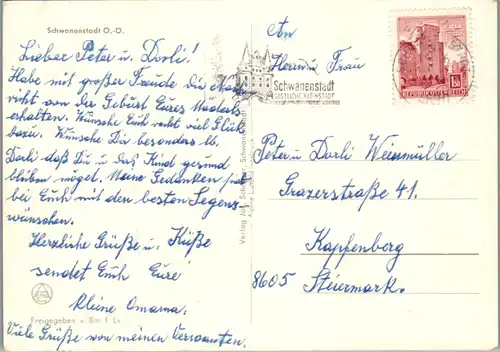 Schwanenstadt O.-Ö.
Lieber Peter u. Dorli!
Habe mit großer Freude die Nach-
richt von der Geburt Eures Mäderls
erhalten. Wünsche Euch recht viel Glück
dazu. Wünsche Dir besonders lb.
Dorli daß Du u. das Kind gesund
bleiben möget. Meine Gedanken sind
bei Euch mit den besten Segens-
wünschen.
Herzliche Grüße u. Küße
sendet Euch Eure
kleine Omama.
Freigegeben v. Bm. f. Lv.
Viele Grüße von meinen Verwanten.
Verlag Jos. Schwanenstadt
An
Herrn u. Frau
Schwanenstadt
GASTLICHE KLEINSTADT
1.50
REPUBLIK ÖSTERREICH
Peter u. Dorli Weinmüller
Grazerstraße 41.
Kapfenberg
8605 Steiermark.